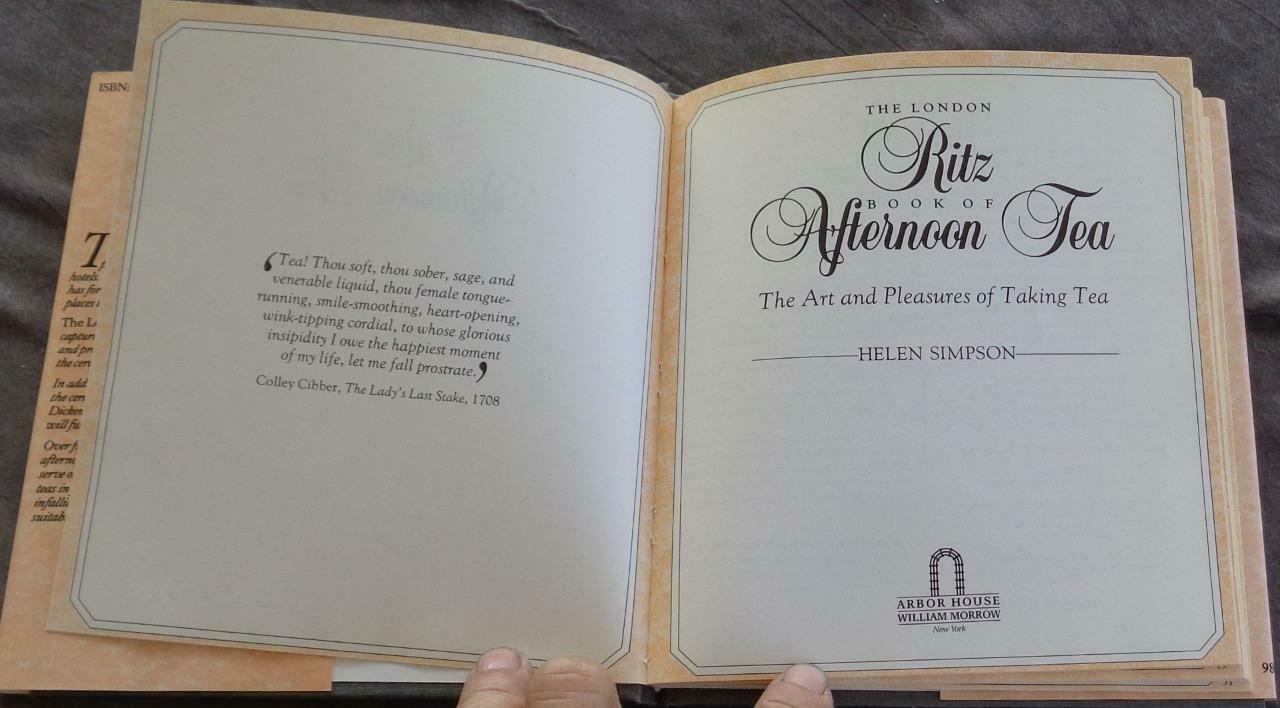 ISBN:
T
hotels.
has for
places
The L
captur
and pr
the cen
In add
the cen
Dicken
will fu
Over f
afterno
serve o
teas in
infalli
suitab
‘Tea! Thou soft, thou sober, sage, and
venerable liquid, thou female tongue-
running, smile-smoothing, heart-opening,
wink-tipping cordial, to whose glorious
insipidity I owe the happiest moment
of my life, let me fall prostrate.’
Colley Cibber, The Lady's Last Stake, 1708
THE LONDON
Ritz
BOOK OF
Afternoon Tea
The Art and Pleasures of Taking Tea
HELEN SIMPSON
ARBOR HOUSE
WILLIAM MORROW
New York
98